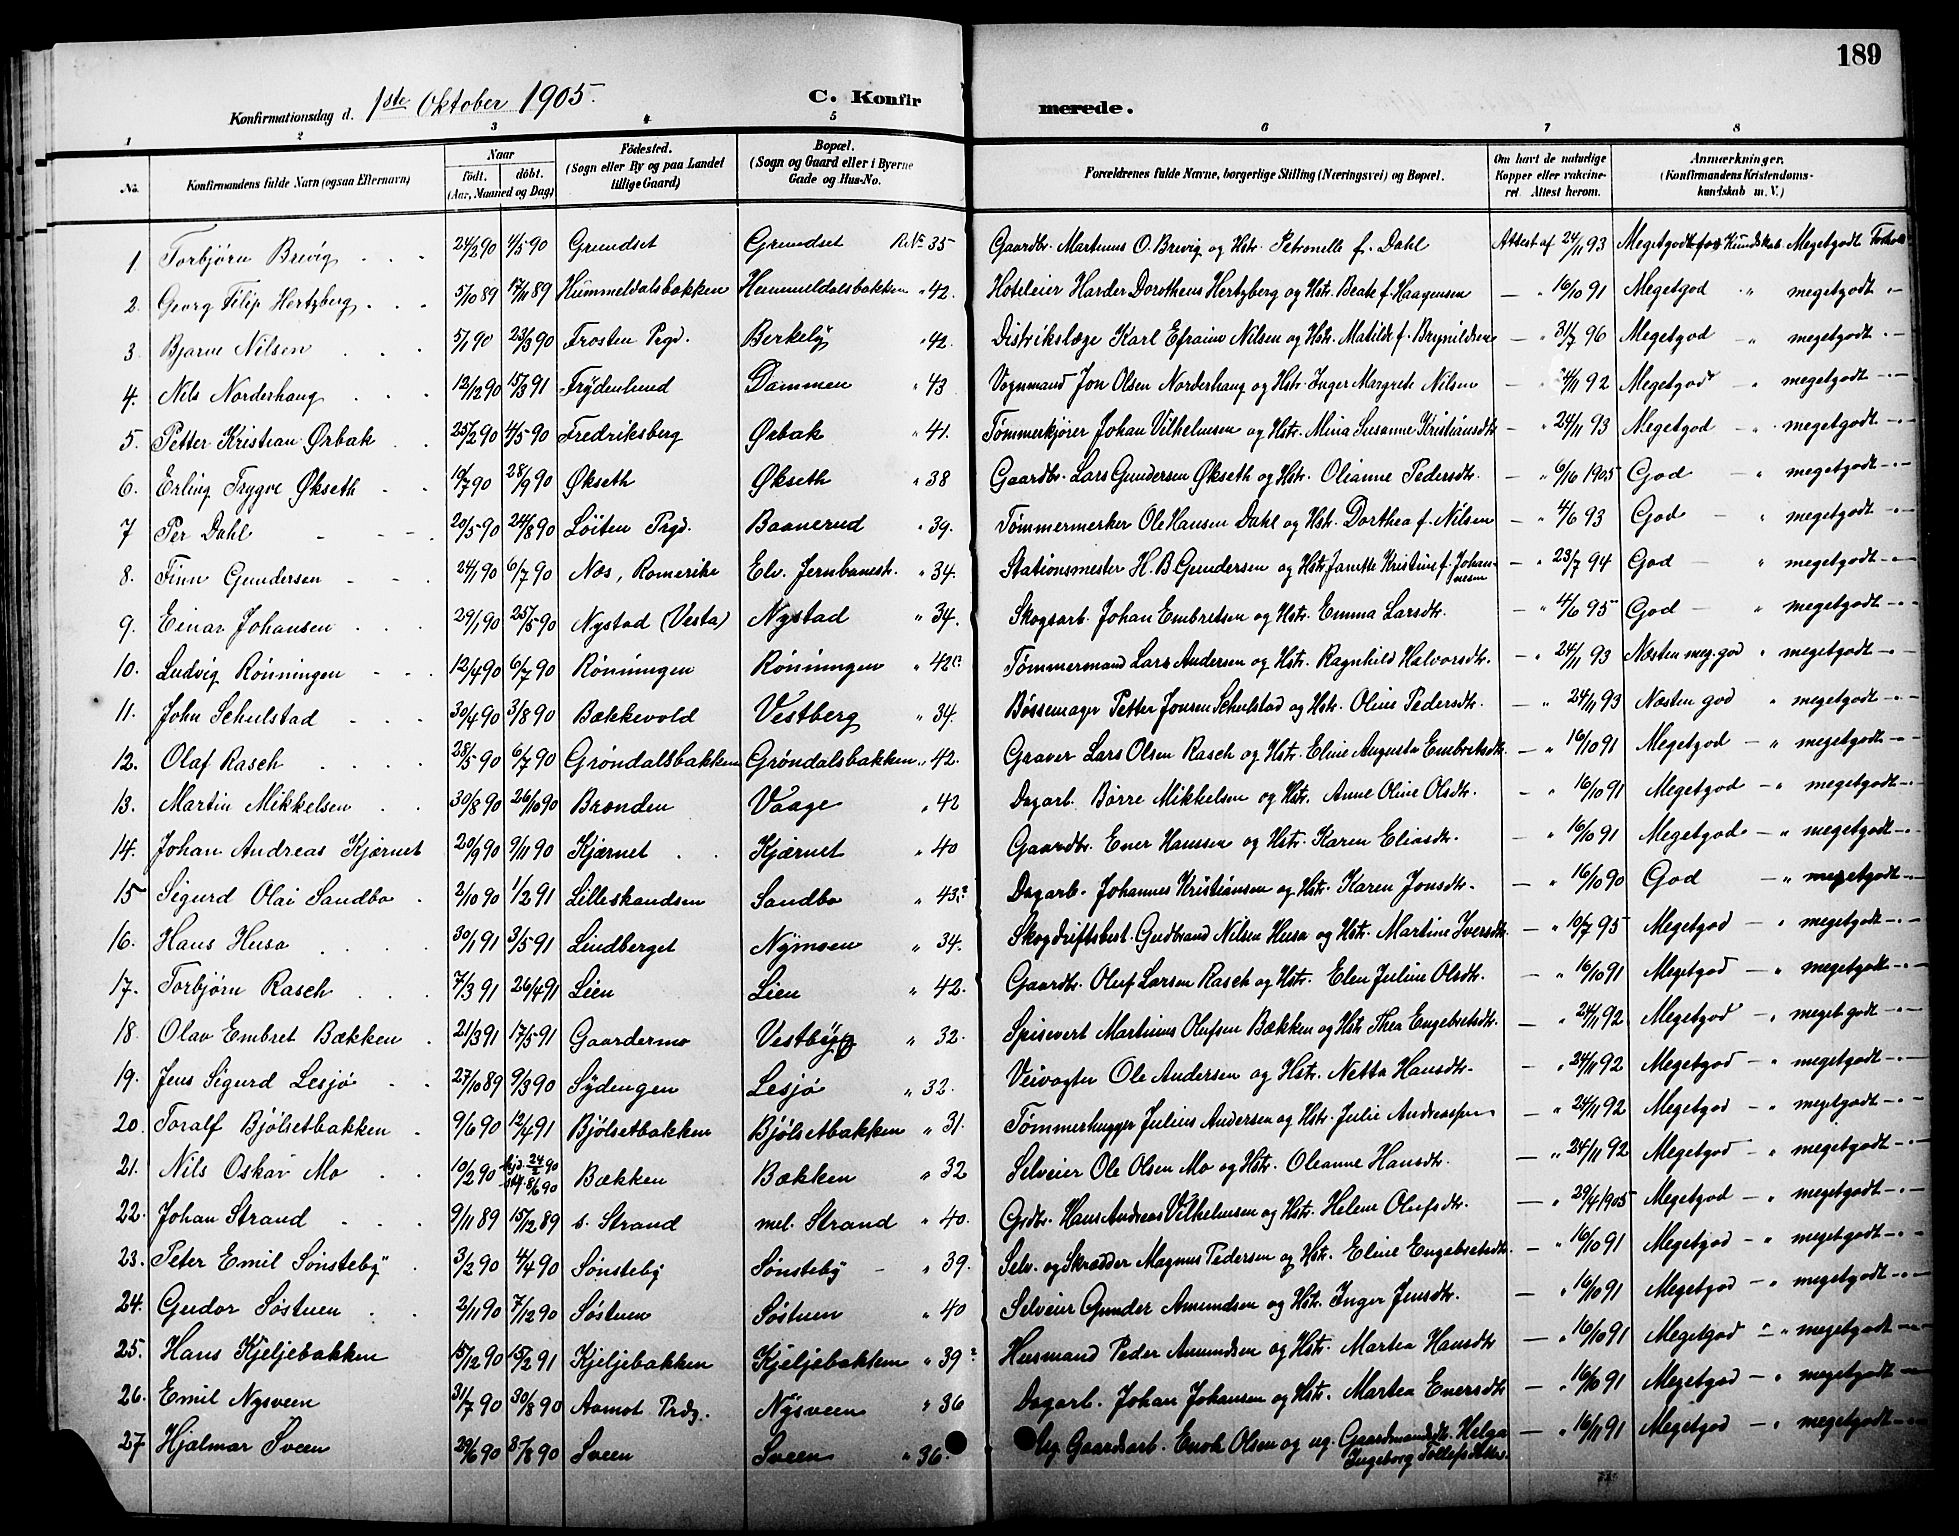 189
Konfirmationsdag d. 1ste Oktober 1905. C. Konfirmerede.
1 2 3 4 5 6 7 8
No. Konfirmandens fulde Navn (ogsaa Efternavn) Naar födt. döbt. (Aar, Maaned og Dag) Födested. (Sogn eller By og paa Landet tillige Gaard) Bopæl. (Sogn og Gaard eller i Byerne Gade og Hus-No. Forældrenes fulde Navne, borgerlige Stilling (Næringsvei) og Bopæl. Om havt de naturlige Kopper eller vakcineret. Attest herom. Anmærkninger. (Konfirmandens Kristendomskundskab m. V.)
1 Torbjørn Brevig 24/2 90 4/5 90 Grundset Grundset 35 Gaardbr. Martinus O. Brevig og Hstr. Petronelle f. Dahl Attest af 24/11 93 Megetgodt Kundskab Megetgodt Forhold
2. Georg Filip Hertzberg 5/10 89 17/11 89 Hummeldalsbakken Hummeldalsbakken " 42. Hoteleier Harder Dorotheus Hertzberg og Hstr. Beate f. Haagensen — " 16/10 91 Megetgod " megetgodt "
3. Bjarne Nilsen 5/1 90 23/3 90 Frosten Prgd. Berkely " 42. Distrikslæge Karl Efraim Nilsen og Hstr. Matilde f. Brynildsen — " 31/7 96 Megetgod — " megetgodt - " -
4. Nils Norderhaug 12/12 90 15/3 91 Frydenlund Dammen " 43 Vognmand Jon Olsen Norderhaug og Hstr. Inger Margrete Nilsen — " 4/11 92 Megetgod — " megetgodt - " -
5. Petter Kristian Ørbak 25/2 90 4/5 90 Fredriksberg Ørbak " 41. Tømmerkjører Johan Vilhelmsen og Hstr. Mina Susanne Kristiansdtr — " 24/11 93 Megetgod — " megetgodt - " -
6. Erling Trygve Økseth 10/7 90 28/9 90 Økseth Økseth " 38 Gaardbr. Lars Gundersen Økseth og Hstr. Olianne Pedersdtr. — " 6/10 1905 God — " megetgodt - " -
7 Per Dahl 20/5 90 24/8 90 Løiten Prgd. Baanerud " 39. Tømmermerker Ole Hansen Dahl og Hstr. Dorthea f. Nilsen — " 4/6 93 God — " megetgodt - " -
8. Finn Gundersen 24/1 90 6/7 90 Næs, Romerike Elv. Jernbanest. " 34. Stationsmester H. B. Gundersen og Hstr. Janette Kristine f. Johannesen — " 23/7 94 God — " megetgodt - " -
9. Einar Johansen 29/1 90 25/5 90 Nystad (Vesta) Nystad " 34. Skogsarb. Johan Embretsen og Hstr. Emma Larsdtr. — " 4/6 95 God — " megetgodt - " -
10. Ludvig Rønningen 12/4 90 6/7 90 Rønningen Rønningen " 42 Tømmermand Lars Andersen og Hstr. Ragnhild Halvorsdtr. — " 24/11 93 Næsten meg. god " megetgodt - " -
11. John Schulstad 30/4 90 3/8 90 Bækkevold Vestberg " 34. Bøssemager Petter Jonsen Schulstad og Hstr. Oline Pedersdtr. — " 24/11 93 Næsten god " megetgodt - " -
12. Olaf Rasch 28/5 90 6/7 90 Grøndalsbakken Grøndalsbakken " 42. Graver Lars Olsen Rasch og Hstr. Eline Augusta Embretsdtr. — " 16/10 91 Megetgod — " megetgodt - " -
13. Martin Mikkelsen 30/8 90 26/10 90 Brænden Vaage " 42 Dagarb. Børre Mikkelsen og Hstr. Anne Oline Olsdtr. — " 16/10 91 Megetgod — " megetgodt - " -
14. Johan Andreas Kjærnet 20/9 90 9/11 90 Kjærnet Kjærnet " 40 Gaardbr. Ener Hanssen og Hstr. Karen Eliasdtr. — " 16/10 91 Megetgod — " megetgodt - " -
15 Sigurd Olai Sandbo 2/10 90 1/2 91 Lilleskandsen Sandbo " 43 Dagarb. Johannes Kristiansen og Hstr. Karen Jonsdtr. — " 16/10 90 God — " megetgodt - " -
16. Hans Husa 30/1 91 3/5 91 Lindberget Nymoen " 34. Skogdriftsbest. Gudbrand Nilsen Husa og Hstr. Martine Iversdtr. — " 10/7 95 Megetgod — " megetgodt - " -
17. Torbjørn Rasch 7/3 91 26/4 91 Lien Lien " 42. Gaardbr. Oluf Larsen Rasch og Hstr. Elen Juline Olsdtr. — " 16/10 91 Megetgod — " megetgodt - " -
18. Olav Embret Bækken 21/3 91 17/5 91 Gaardermo Vestby " 32. Spisevert Martinius Olufsen Bækken og Hstr. Thea Engebretsdtr. — " 24/11 92 Megetgod — " meget godt - " -
19. Jens Sigurd Lesjø 27/10 89 9/3 90 Sydengen Lesjø " 32. Veivogter Ole Andersen og Hstr. Netta Hansdtr. — " 24/11 92 Megetgod — " megetgodt - " -
20. Toralf Bjølsetbakken 9/6 90 12/4 91 Bjølsetbakken Bjølsetbakken " 31. Tømmerhugger Julius Andersen og Hstr. Julie Andreasen — " 24/11 92 Megetgod — " megetgodt - " -
21. Nils Oskar Mo 10/2 90 hjd. 24/2 90 8/6 90 Bækken Bækken " 32 Selveier Ole Olsen Mo og Hstr. Oleanne Hansdtr. — " 24/11 92 Megetgod — " megetgodt - " -
22. Johan Strand 9/11 89 15/12 89 s. Strand mel. Strand " 40. Grdbr. Hans Andreas Vilhelmsen og Hstr. Helene Olufsdtr. — " 29/4 1905 Megetgod — " megetgodt - " -
23. Peter Emil Sønsteby 3/2 90 4/4 90 Sønsteby Sønsteby " 39. Selv. og Skrædder Magnus Pedersen og Hstr. Eline Engebretsdtr. — " 16/10 91 Megetgod — " megetgodt - " -
24. Gudor Søstuen 2/11 90 7/12 90 Søstuen Søstuen " 40 Selveier Gunder Amundsen og Hstr. Inger Jensdtr. — " 16/10 91 Megetgod — " megetgodt - " -
25. Hans Kjeljebakken 15/12 90 15/2 91 Kjeljebakken Kjeljebakken " 39 Husmand Peder Amundsen og Hstr. Martea Hansdtr — " 16/10 91 Megetgod — " megetgodt - " -
26. Emil Nysveen 31/7 90 30/8 90 Aamot Prdg. Nysveen " 36 Dagarb. Johan Johansen og Hstr. Martea Enersdtr — " 16/10 91 Megetgod — " megetgodt - " -
27 Hjalmar Sveen 29/6 90 8/90 Sveen Sveen " 36. Ug. Gaardsarb. Enok Olsen og ug. Gaardmandsdtr. Helga Ingeborg — " 16/11 91 Megetgod — " megetgodt - " -